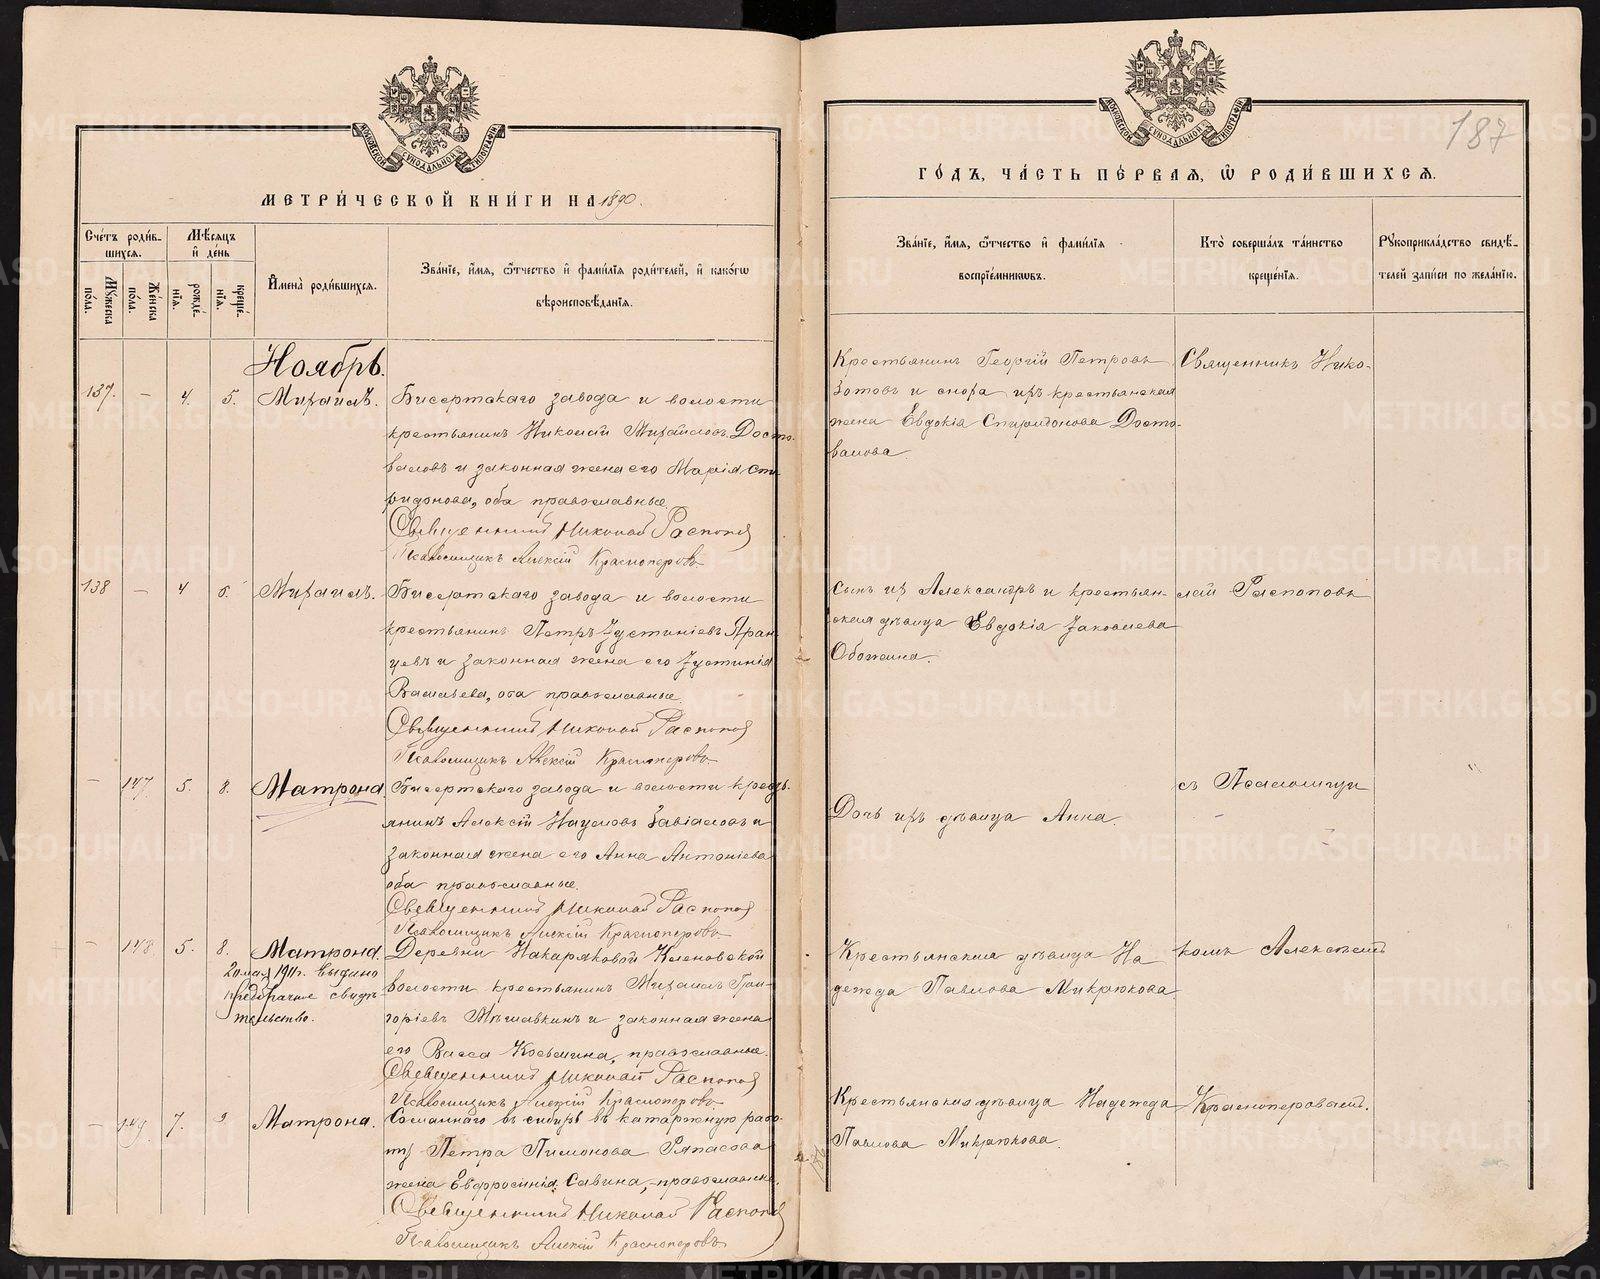 МЕТРИ́ЧЕСКОЙ КНИ́ГИ НА 1890.
Счéтъ роди́в-
шихся.
Мѣ́сяцъ
и҆ де́нь
Мꙋ́жеска
по́ла.
Же́нска
по́ла.
рожде́-
нїя.
креще́-
нїя.
И҆мена̀ роди́вшихся.
Зва́нїе, и҆́мя, ѻ҆́тчество и҆ фами́лїя роди́телей, и҆ како́гѡ
вѣроисповѣ́данїя.
Ноябрь.
137.
-
4.
5.
Михаилъ.
Бисертскаго завода и волости
крестьянинъ Николай Михайловъ Досто-
валовъ и законная жена его Марія Спи-
ридонова, оба православные.
Священникъ Николай Распопов
Псаломщикъ Алексій Красноперовъ
138
-
4
6.
Михаилъ.
Бисертскаго завода и волости
крестьянинъ Петръ Іустиніевъ Яран-
цевъ и законная жена его Іустинія
Васильева, оба православные.
Священникъ Николай Распопов
Псаломщикъ Алексій Красноперовъ
-
147
5.
8.
Матрона.
Бисертскаго завода и волости кресть-
янинъ Алексій Наумовъ Завіаловъ и
законная жена его Анна Антоніева
оба православные.
Священникъ Николай Распопов
Псаломщикъ Алексій Красноперовъ
-
148
5.
8.
Матрона.
20 мая 1911г. выдано
предбрачное свидѣ-
тельство.
Деревни Накаряковой Кленовской
волости крестьянинъ Михаилъ Гри-
горіевъ Мѣшавкинъ и законная жена
его Васса Козьмина, православные.
Священникъ Николай Распопов
Псаломщикъ Алексій Красноперовъ
-
149.
7.
9
Матрона.
Сосланнаго въ сибирь въ каторжную рабо-
ту Петра Пимонова
жена Евфросинія Савина, православная.
Священникъ Николай Распопов
Псаломщикъ Алексій Красноперовъ
187
ГО́ДЪ, ЧА́СТЬ ПЕ́РВАЯ, Ѡ҆ РОДИ́ВШИХСЯ.
Зва́нїе, и҆́мя, ѻ҆́тчество и҆ фами́лїя
воспрїе́мникѡвъ.
Кто̀ соверша́лъ та́инство
креще́нїя.
Рꙋкоприкла́дство свидѣ́-
телей за́писи по жела́нїю.
Крестьянинъ Георгій Петровъ
Зотовъ и снохи ихъ крестьянская
жена Евдокія Спиридонова Досто-
валова.
Священникъ Нико-
сынъ ихъ Александръ и крестьян-
ская дѣвица Евдокія Іаковлева
Обожина.
лай Распоповъ
съ Псаломщи
Дочь ихъ дѣвица Анна.
Крестьянская дѣвица На
дежда Павлова Микрюкова
комъ Алексѣемъ
Крестьянская дѣвица Надежда
Павлова Микрюкова.
Красноперовымъ.
МОСКОВСКОЙ СѴНОДАЛЬНОЙ ТИПОГРАФІИ
METRIKI.GASO-URAL.RU